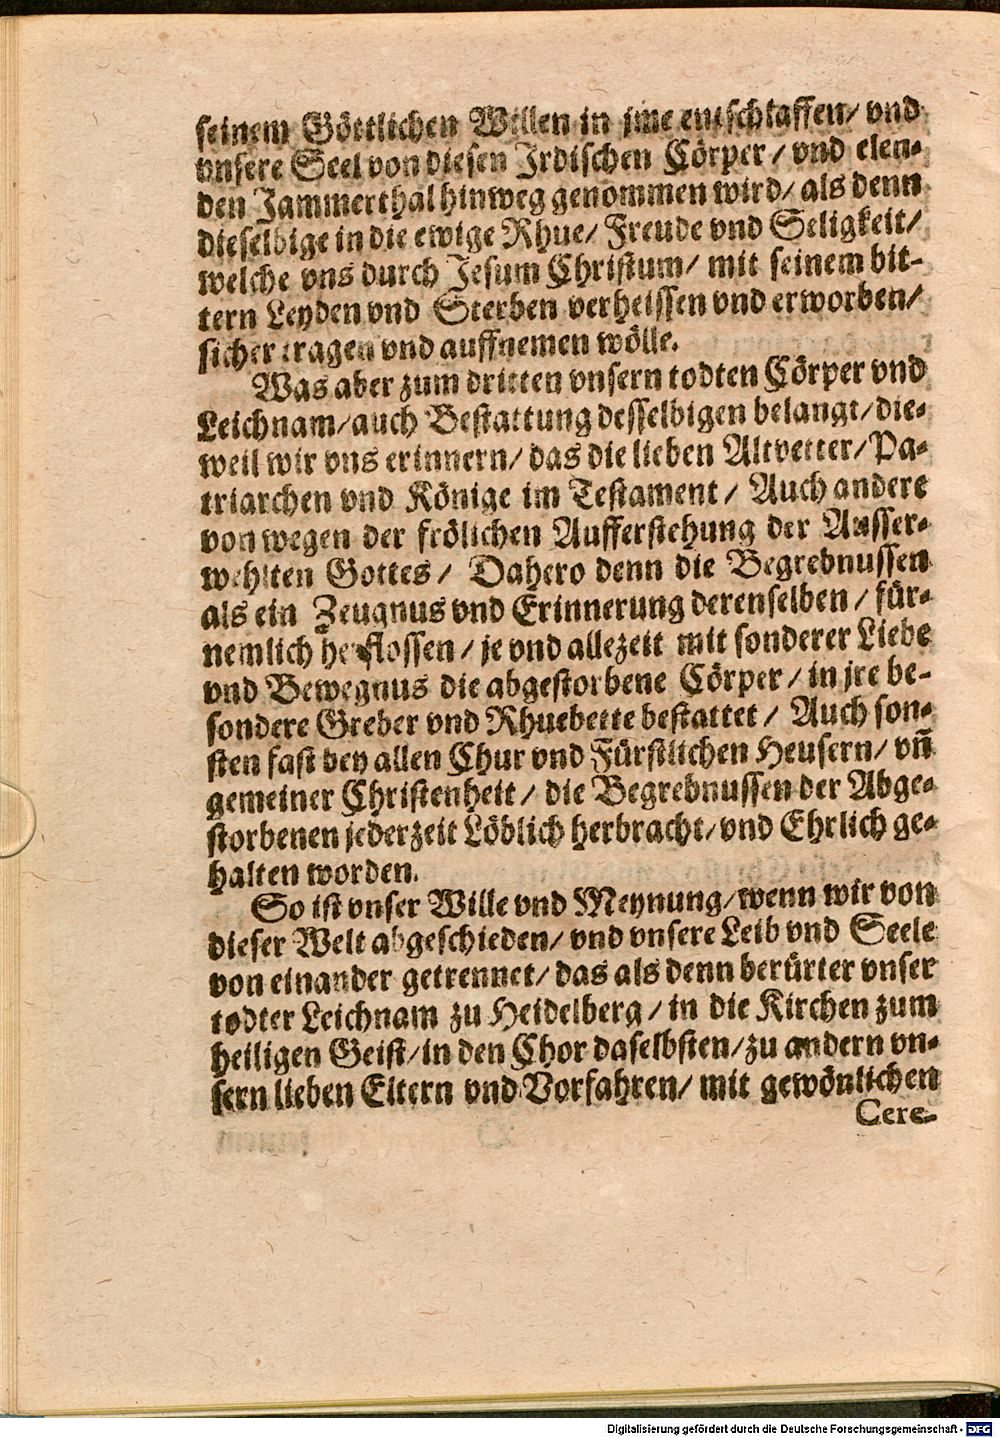 seinem Göttlichen Willen in jme entschlaffen/ vnd
vnsere Seel von diesen Irdischen Cörper/ vnd elen-
den Jammerthal hinweg genommen wird/ als denn
dieselbige in die ewige Rhue/ Freude vnd Seligkeit/
welche vns durch Jesum Christum/ mit seinem bit-
tern Leyden vnd Sterben verheissen vnd erworben/
sicher tragen vnd auffnemen wölle.
Was aber zum dritten vnsern todten Cörper vnd
Leichnam/ auch Bestattung desselbigen belangt/ die-
weil wir vns erinnern/ das die lieben Altvetter/ Pa-
triarchen vnd Könige im Testament/ Auch andere
von wegen der frölichen Aufferstehung der Ausser-
wehlten Gottes/ Dahero denn die Begrebnussen
als ein Zeugnus vnd Erinnerung derenselben/ für-
nemlich herflossen/ je vnd allezeit mit sonderer Liebe
vnd Bewegnus die abgestorbene Cörper/ in jre be-
sondere Greber vnd Rhuebette bestattet/ Auch son-
sten fast bey allen Chur vnd Fürstlichen Heusern/ vn̄
gemeiner Christenheit/ die Begrebnussen der Abge-
storbenen jederzeit Löblich herbracht/ vnd Ehrlich ge-
halten worden.
So ist vnser Wille vnd Meynung/ wenn wir von
dieser Welt abgeschieden/ vnd vnsere Leib vnd Seele
von einander getrennet/ das als denn berürter vnser
todter Leichnam zu Heidelberg/ in die Kirchen zum
heiligen Geist/ in den Chor daselbsten/ zu andern vn-
sern lieben Eltern vnd Vorfahren/ mit gewönlichen
Cere-
Digitalisierung gefördert durch die Deutsche Forschungsgemeinschaft - DFG